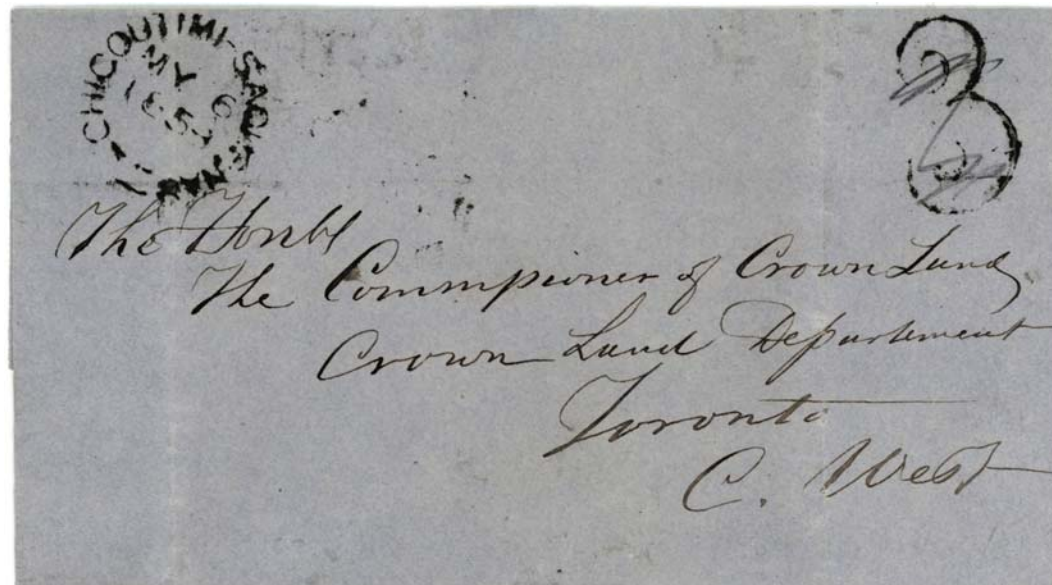 CHICOUTIMI-SAGUENAY
MY 6
3
The Honbl
The Commissioner of Crown Lands
Crown Land Departement
Toronto
C. West